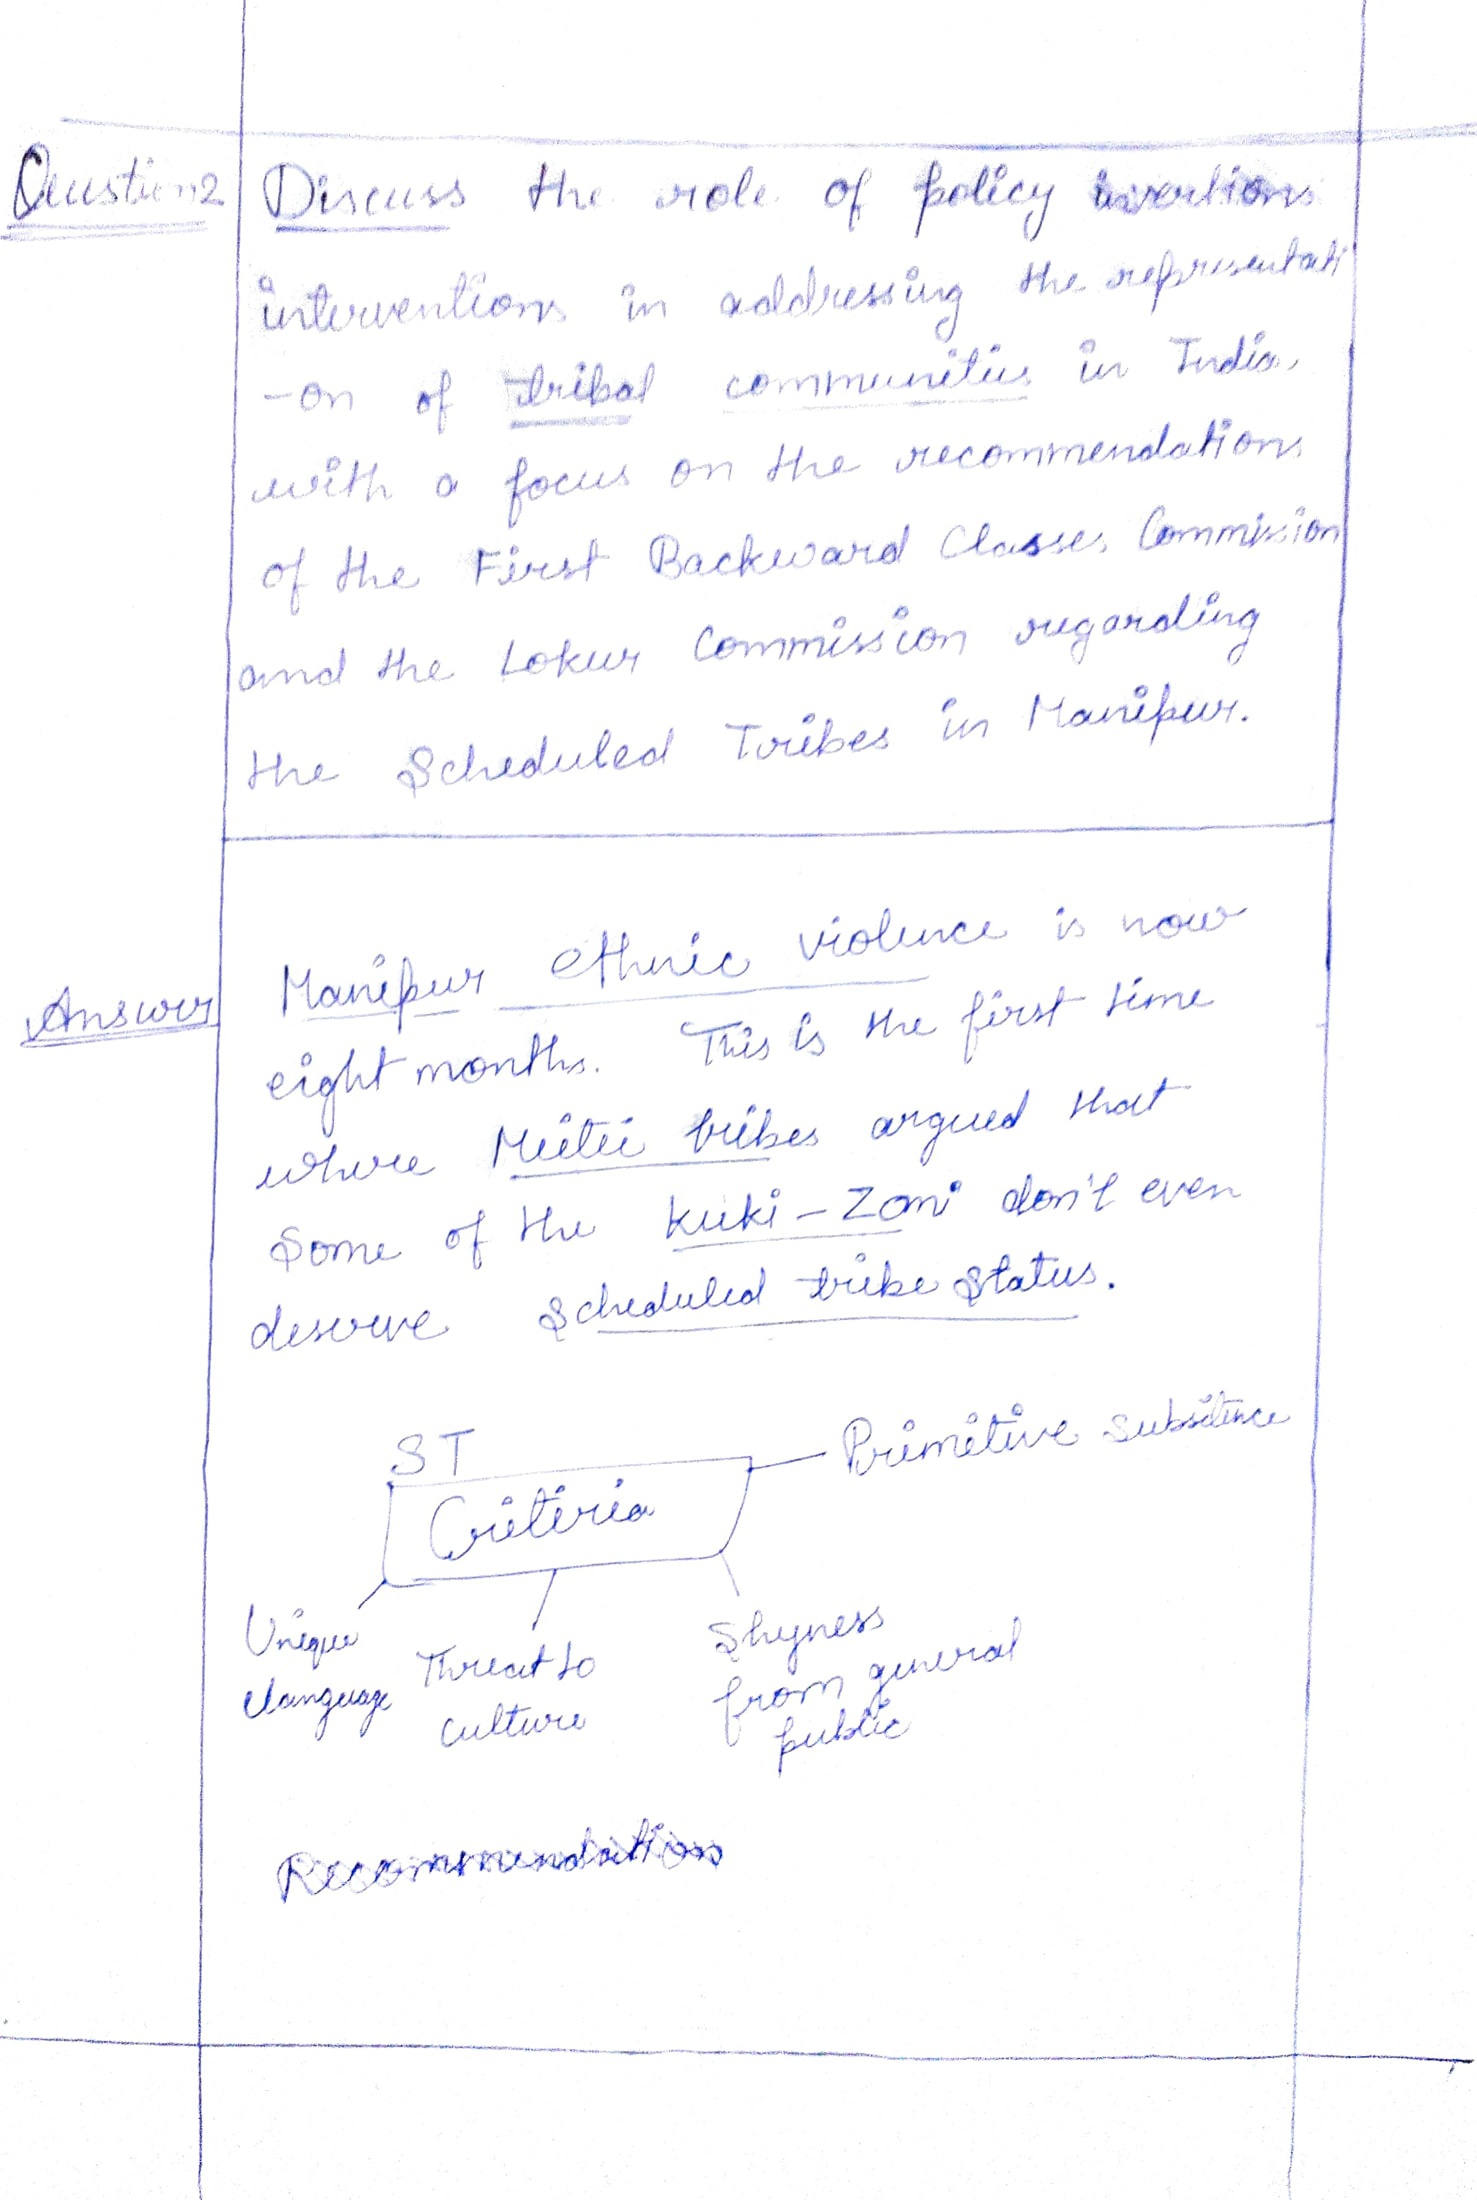 Question 2
Discuss the role of policy
interventions in addressing the representati
-on of tribal communities in India,
with a focus on the recommendations
of the First Backward Classes Commission
and the Lokur Commission regarding
the Scheduled Tribes in Manipur.
Answer
Manipur ethnic violence is now
eight months. This is the first time
where Meitei tribes argued that
Some of the Kuki-Zomi don't even
deserve Scheduled tribe Status.
ST
Criteria
Primitive
Unique
language
Threat to
culture
Shyness
from general
public
Recommendations